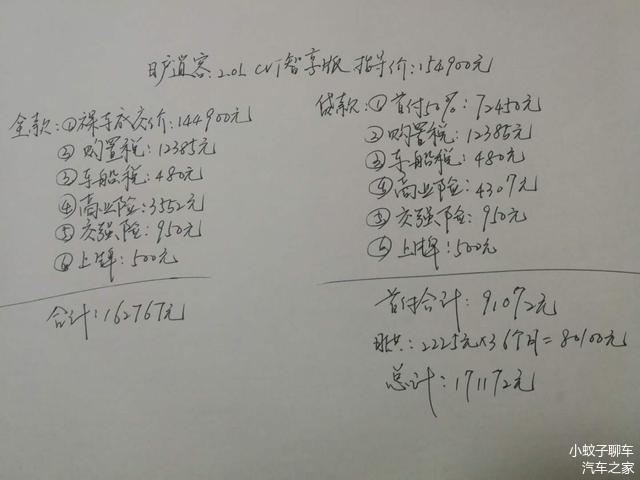 日产逍客 2.0L CVT智享版 指导价:154900元
全款:①裸车成交价:144900元
②购置税:12385元
③车船税:480元
④商业险:3552元
⑤交强险:950元
⑥上牌:500元
合计:162767元
贷款:①首付50%:72450元
②购置税:12385元
③车船税:480元
④商业险:4307元
⑤交强险:950元
⑥上牌:500元
首付合计:91072元
月供:2225元×36个月=80100元
总计:171172元
小蚊子聊车
汽车之家